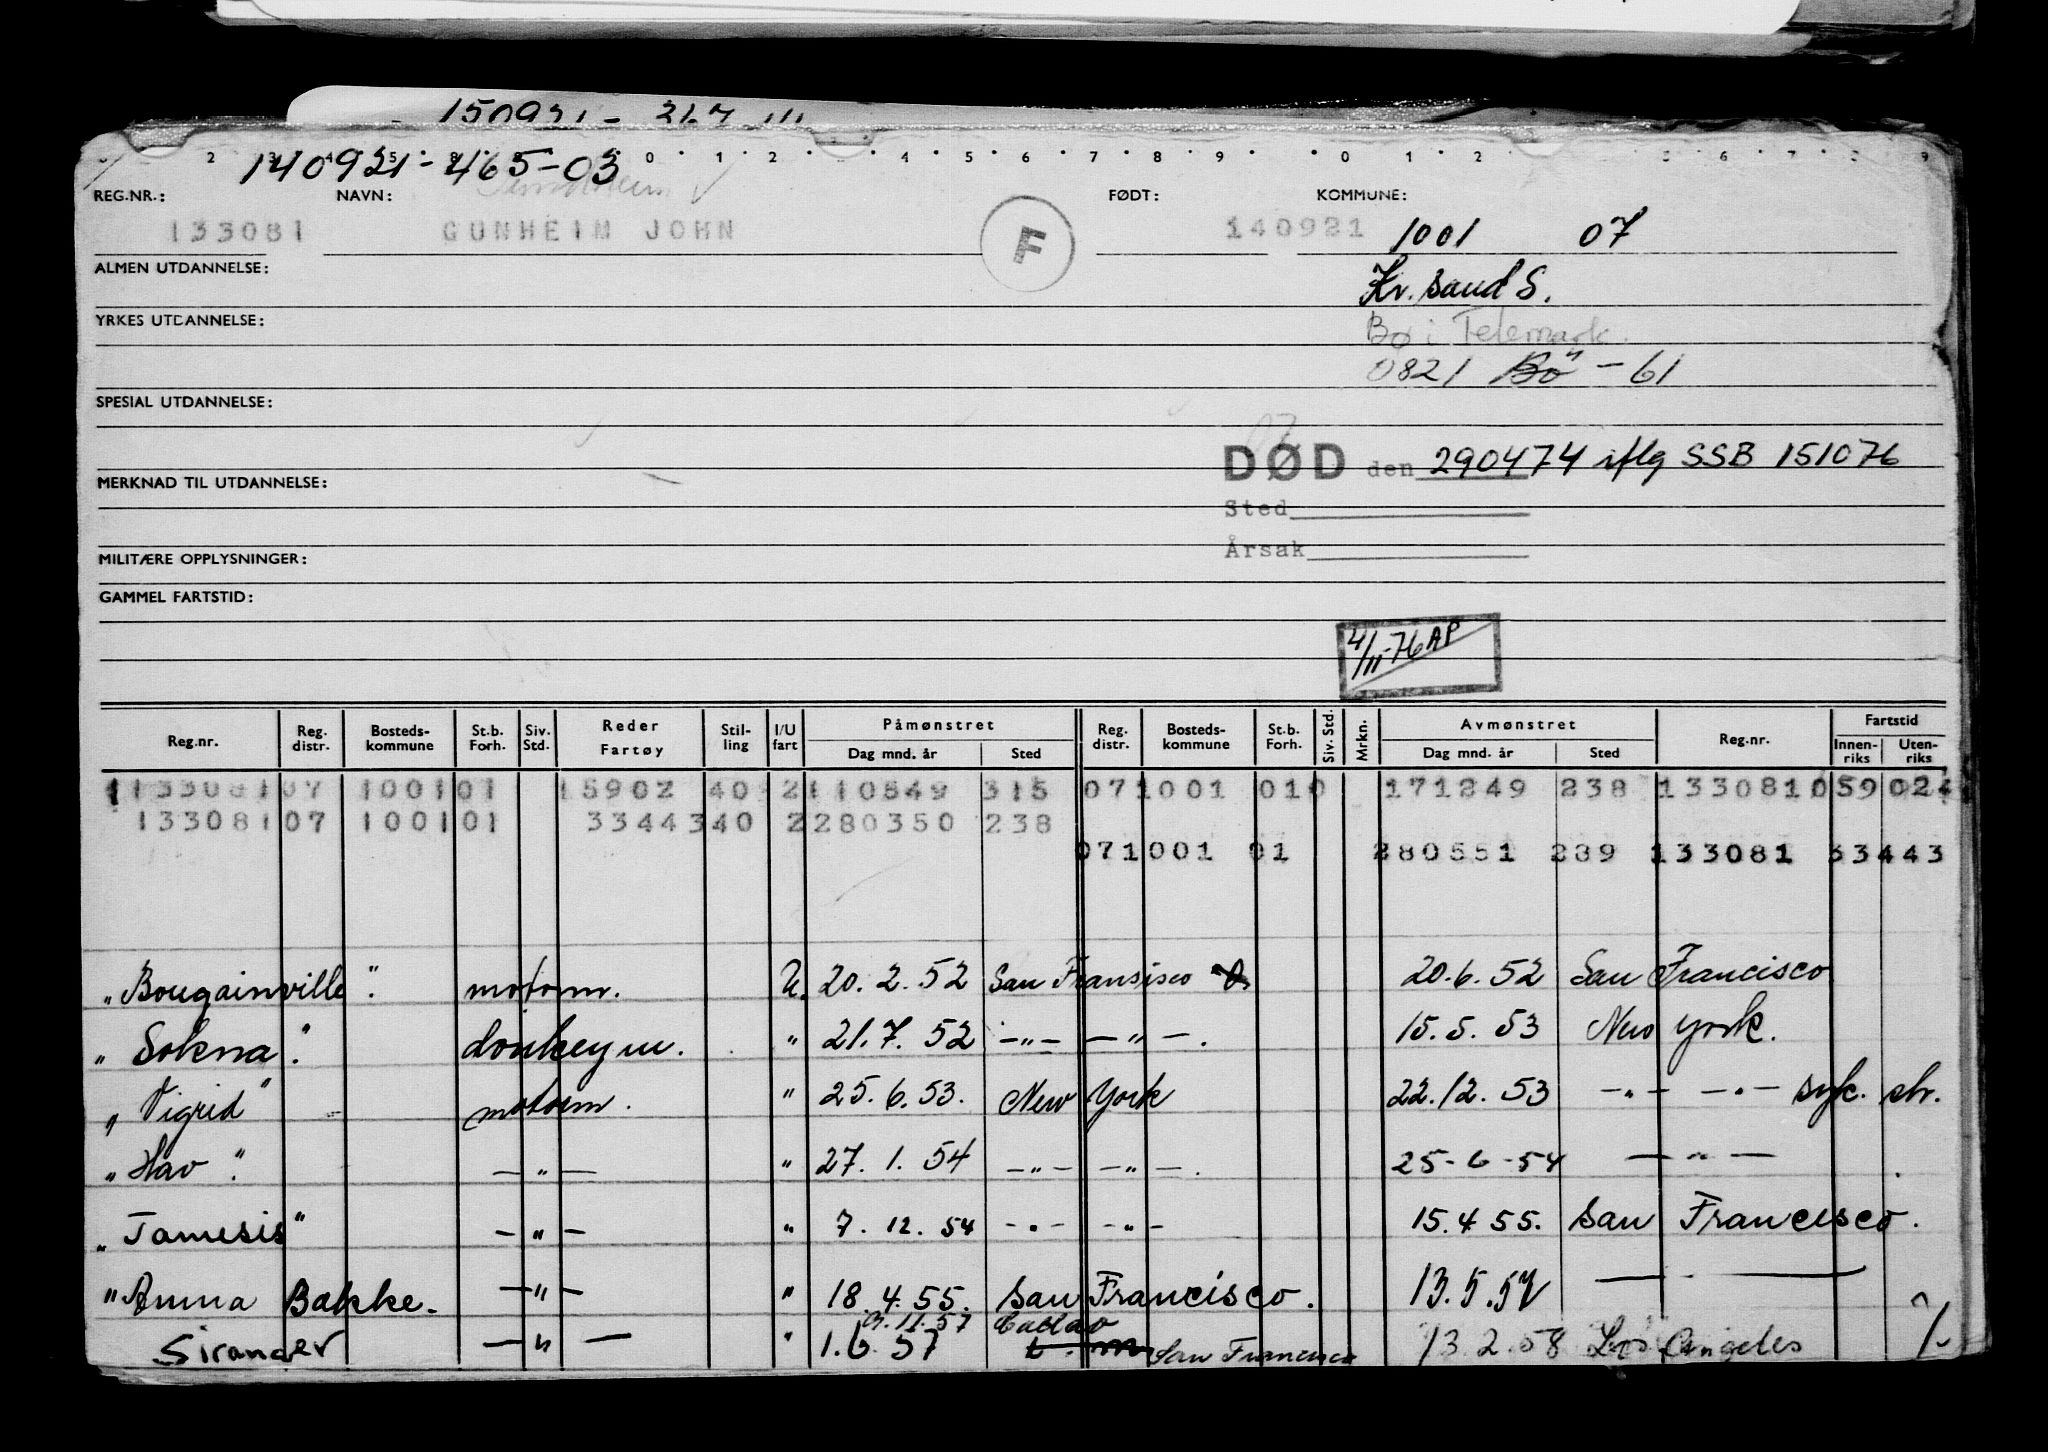 140921-465-03
REG.NR.: NAVN: FØDT: KOMMUNE:
133081 GUNHEIM JOHN F 140921 1001 07
ALMEN UTDANNELSE:
Kr.sand S.
YRKES UTDANNELSE: Bø i Telemark.
0821 Bø - 61
SPESIAL UTDANNELSE:
DØD den 290474 iflg SSB 151076
MERKNAD TIL UTDANNELSE:
Sted
Årsak
MILITÆRE OPPLYSNINGER:
GAMMEL FARTSTID:
4/11-76 AP
Reg.nr. Reg. distr. Bosteds-kommune St.b. Forh. Siv. Std. Reder Fartøy Stil-ling I/U fart Påmønstret Dag mnd. år Sted Reg. distr. Bosteds-kommune St.b. Forh. Siv. Std. Mrkn. Avmønstret Dag mnd. år Sted Reg.nr. Fartstid Innen-riks Uten-riks
133081 07 1001 01 15902 40 2 110549 315 07 1001 010 171249 238 133081 059 024
133081 07 1001 01 33443 40 2 280350 238
07 1001 01 280551 239 133081 33443
"Bougainville". motorm. U. 20.2.52 San Fransisco 20.6.52 San Francisco
"Sokna". donkeym. " 21.7.52 -"- -"-. 15.5.53 New York.
"Vigrid" motorm. " 25.6.53. New York 22.12.53 -"- -"- syk. str.
"Hav". -"- " 27.1.54 -"- -"-. 25-6-54 -"-
"Tamesis" -"- " 7.12.54 -"- -"- 15.4 55. San Francisco.
"Anna Bakke. -"- " 18.4.55. San Francisco. 13.5.57
11.57 Callao
Siranger -"- " 1.6.57 San Francisco 13.2.58 Los Angeles